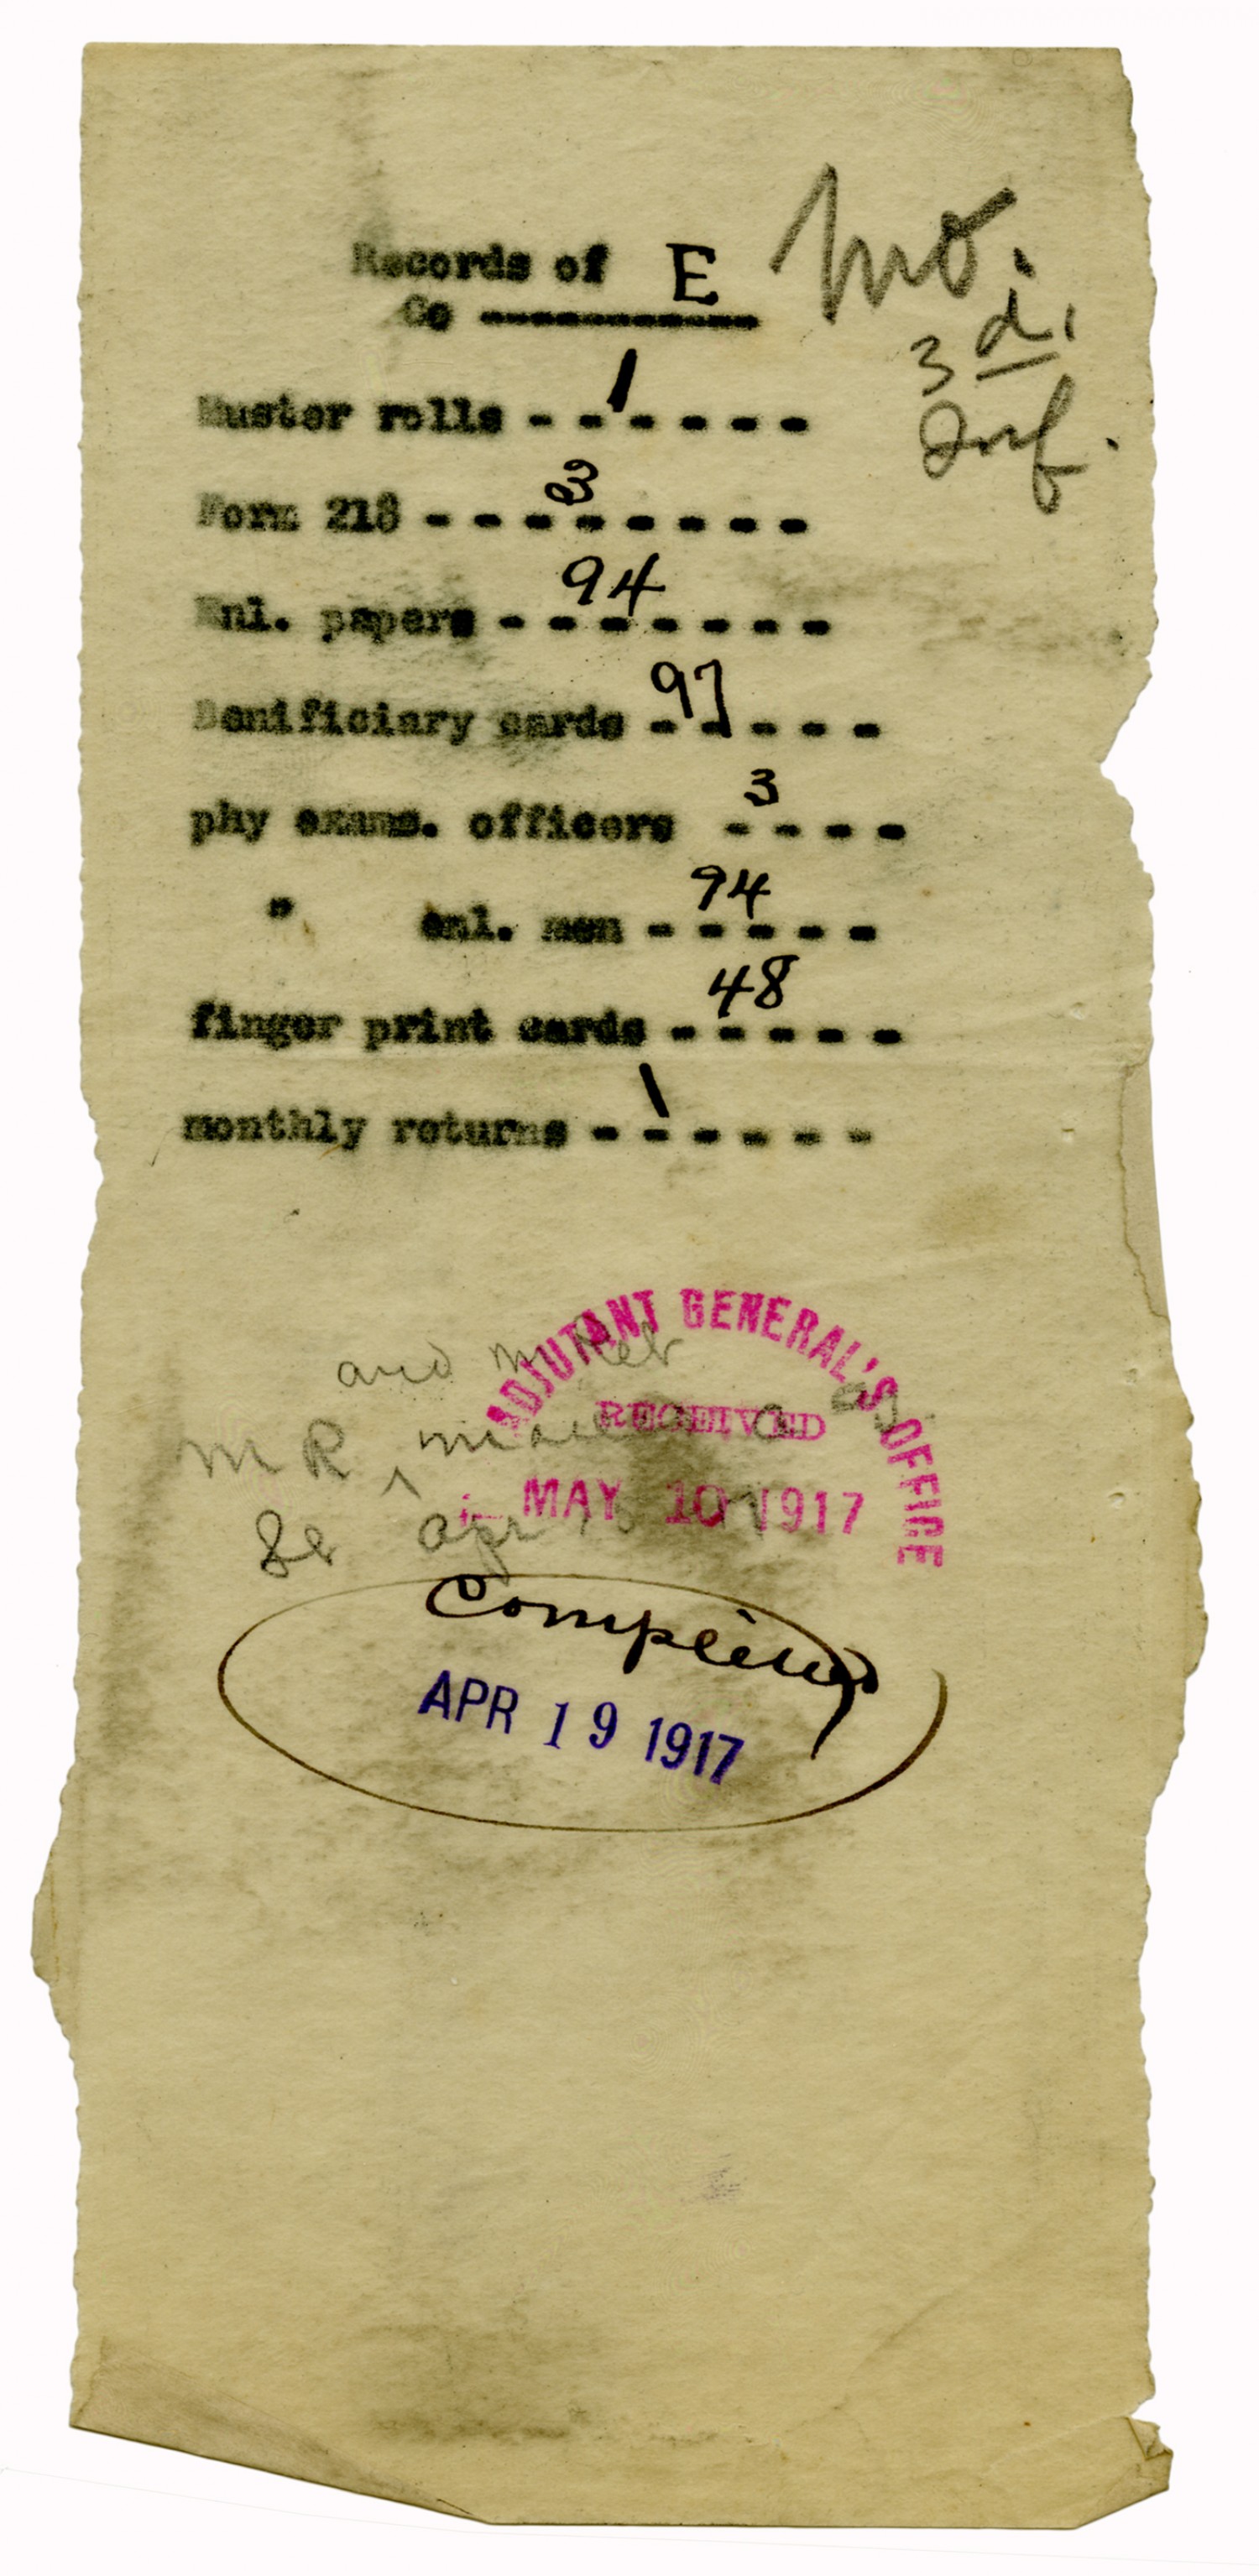 Records of E Mo.
Co ----------- 3 d.
Inf.
Muster rolls - - 1 - - - -
Form 218 - - - 3 - - - - -
Enl. papers - - 94 - - - - -
Benificiary cards - 97 - - - -
phy exams. officers 3 - - - -
" enl. men - 94 - - - -
finger print cards - 48 - - - -
monthly returns - 1 - - - - -
ADJUTANT GENERAL'S OFFICE
and
RECEIVED
M R
MAY 10 1917
Apr
Completed
APR 19 1917